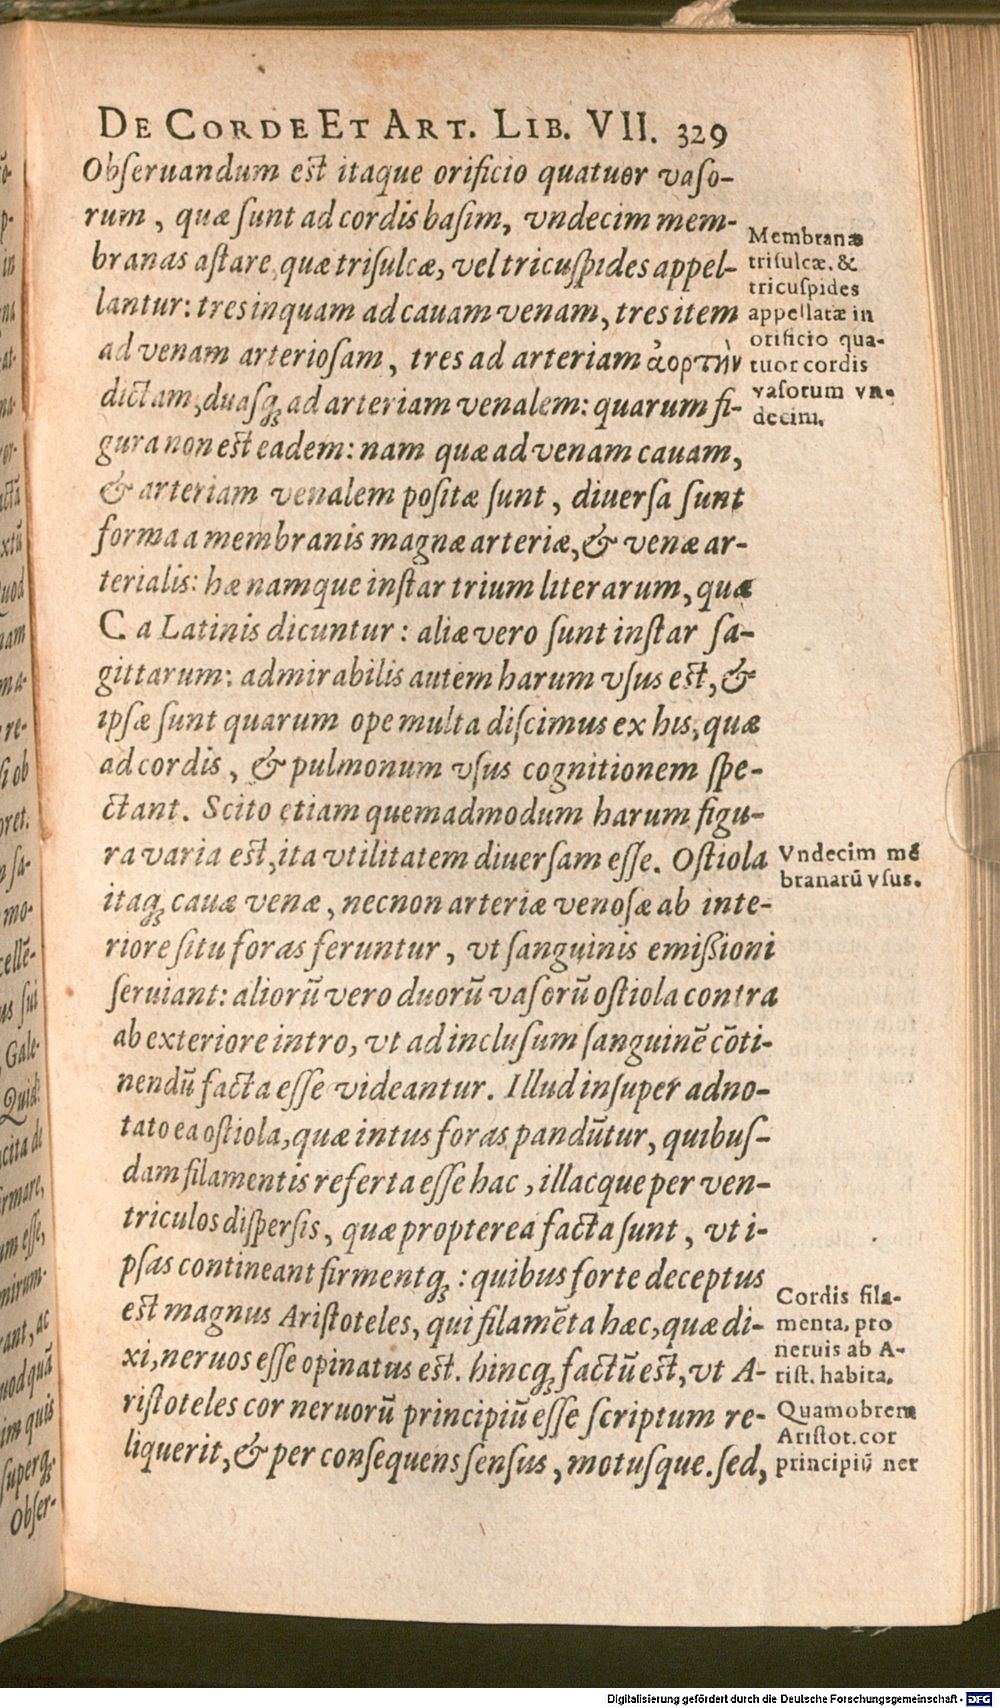 DE CORDE ET ART. LIB. VII. 329
Obſeruandum eſt itaque orificio quatuor vaſo-
rum, quæ ſunt ad cordis baſim, vndecim mem-
branas aſtare quæ triſulcæ, vel tricuſpides appel-
lantur: tres inquam ad cauam venam, tres item
ad venam arterioſam, tres ad arteriam ἀορτὴν
dictam, duasq́ʒ ad arteriam venalem: quarum fi-
gura non eſt eadem: nam quæ ad venam cauam,
& arteriam venalem poſitæ ſunt, diuerſa ſunt
forma a membranis magnæ arteriæ, & venæ ar-
terialis: hæ namque inſtar trium literarum, quæ
C. a Latinis dicuntur: aliæ vero ſunt inſtar ſa-
gittarum: admirabilis autem harum vſus eſt, &
ipſæ ſunt quarum ope multa diſcimus ex his, quæ
ad cordis, & pulmonum vſus cognitionem ſpe-
ctant. Scito etiam quemadmodum harum figu-
ra varia eſt, ita vtilitatem diuerſam eſſe. Oſtiola
itaq́ʒ cauæ venæ, necnon arteriæ venoſæ ab inte-
riore ſitu foras feruntur, vt ſanguinis emiſsioni
ſeruiant: aliorū vero duorū vaſorū oſtiola contra
ab exteriore intro, vt ad incluſum ſanguinē cōti-
nendū facta eſſe videantur. Illud inſuper adno-
tato ea oſtiola, quæ intus foras pandūtur, quibuſ-
dam filamentis referta eſſe hac, illacque per ven-
triculos diſperſis, quæ propterea facta ſunt, vt i-
pſas contineant firmentq́ʒ: quibus forte deceptus
eſt magnus Ariſtoteles, qui filamēta hæc, quæ di-
xi, neruos eſſe opinatus eſt. hincq́ʒ factū eſt, vt A-
riſtoteles cor neruorū principiū eſſe ſcriptum re-
liquerit, & per conſequens ſenſus, motusque. ſed,
Membranæ
triſulcæ, &
tricuſpides
appellatæ in
orificio qua-
tuor cordis
vaſorum vn-
decim.
Vndecim mē
branarū vſus.
Cordis fila-
menta, pro
neruis ab A-
riſt. habita.
Quamobrem
Ariſtot. cor
principiū ner
Obſer-
Digitalisierung gefördert durch die Deutsche Forschungsgemeinschaft - DFG